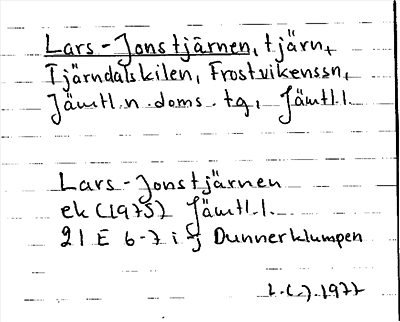 Lars-Jonstjärnen, tjärn,
Tjärndalskilen, Frostvikenssn,
Jämtl.n.doms.tg, Jämtl.l.
Lars-Jonstjärnen
ek (1975) Jämtl.l.
21 E 6-7 i-j Dunnerklumpen
1977